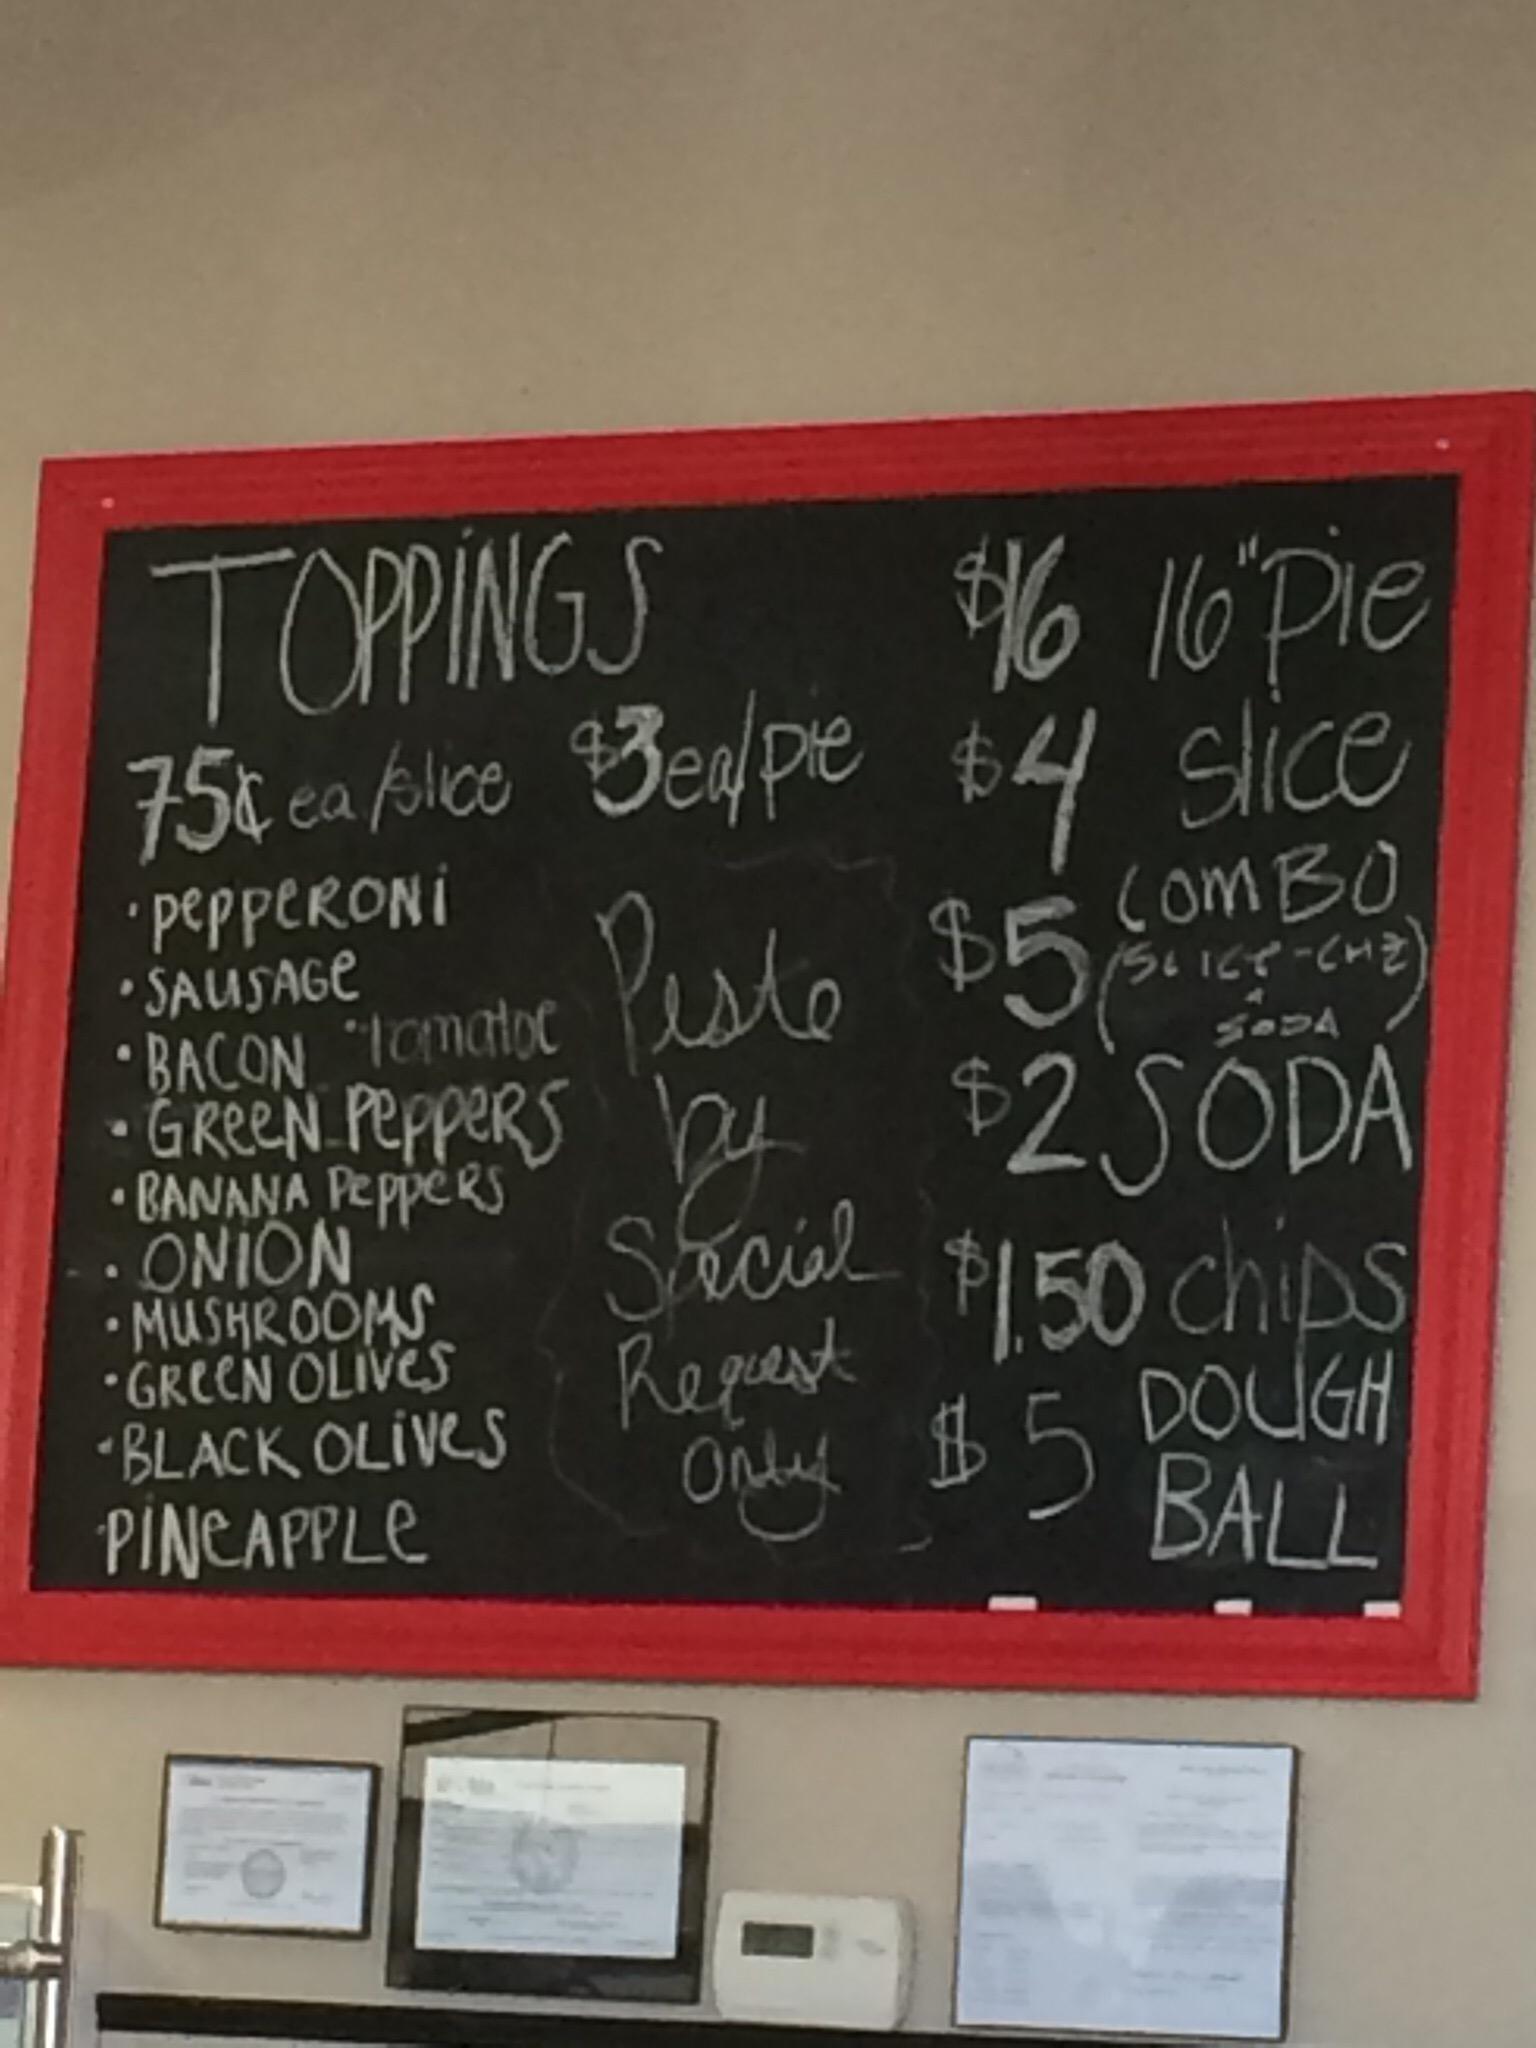 TOPPiNGS
75¢ ea/slice $3 ea/pie
·PePPeRONi
·SAUSAGe
·BACON ·Tomatoe
·GReeN PePPeRS
·BANANA PePPeRS
·ONiON
·MUSHROOMS
·GReeN OLiVeS
·BLACK OLiVeS
·PiNeAPPLe
Pesto
by
Special
Request
Only
$16 16" Pie
$4 Slice
$5 COMBO
(SLICE-CHZ)
+
SODA
$2 SODA
$1.50 chips
$5 DOUGH
BALL